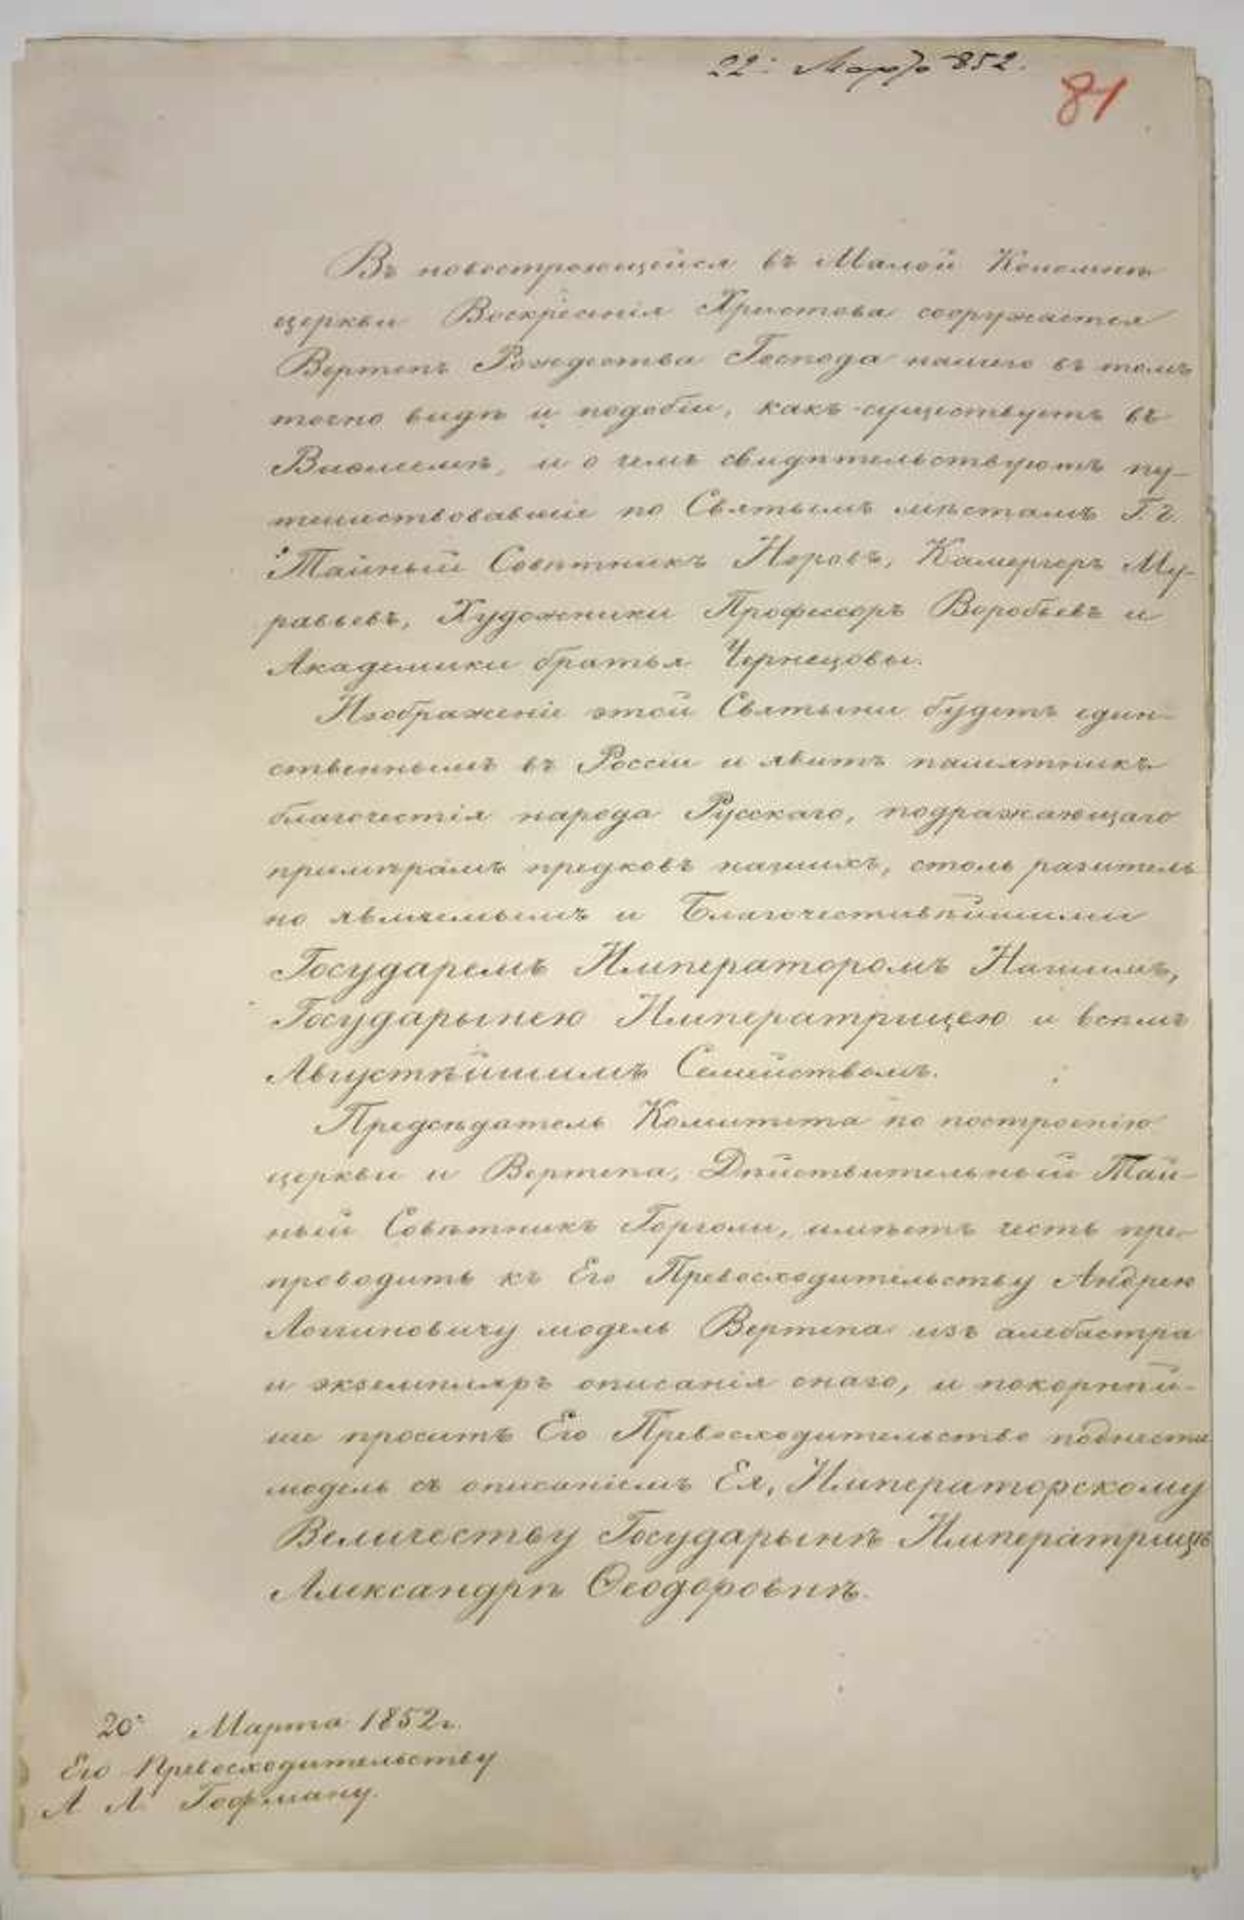 22 Марта 852.
81
Въ новостроющейся въ Малой Коломнѣ
церкви Воскресенія Христова сооружается
Вертепъ Рождества Господа нашего въ томъ
точно видѣ и подобіи, какъ существуетъ въ
Виѳлеемѣ, и о чемъ свидѣтельствуютъ пу-
тешествовавшіе по Святымъ мѣстамъ Г. г.
Тайный Совѣтникъ Норовъ, Камергеръ Му-
равьевъ, Художники Профессоръ Воробьевъ и
Академики братья Чернецовы.
Изображеніе этой Святыни будетъ един-
ственнымъ въ Россіи и явитъ памятникъ
благочестія народа Русскаго, подражающаго
примѣрамъ предковъ нашихъ, столь разитель
но являемымъ и Благочестивѣйшими
Государемъ Императоромъ Нашимъ,
Государынею Императрицею и всѣмъ
Августѣйшимъ Семействомъ.
Предсѣдатель Комитета по построенію
церкви и Вертепа, Дѣйствительный Тай-
ный Совѣтникъ Горголи, имѣетъ честь пре-
проводить къ Его Превосходительству Андрею
Логиновичу модель Вертепа изъ алебастра
и экземпляръ описанія онаго, и покорнѣй-
ше проситъ Его Превосходительство поднести
модель съ описаніемъ Ея, Императорскому
Величеству Государынѣ Императрицѣ
Александрѣ Ѳеодоровнѣ.
20 Марта 1852 г.
Его Превосходительству
А. Л. Гофману.